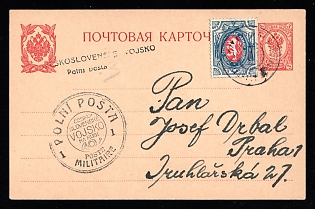 ПОЧТОВАЯ КАРТОЧКА
ČESKOSLOVENSKÉ VOJSKO
Polní pošta
POLNÍ POŠTA
1 1
VOJSKO
POSTE
MILITAIRE
Pan
Josef Drbal
Praha I
Truhlářská 27.